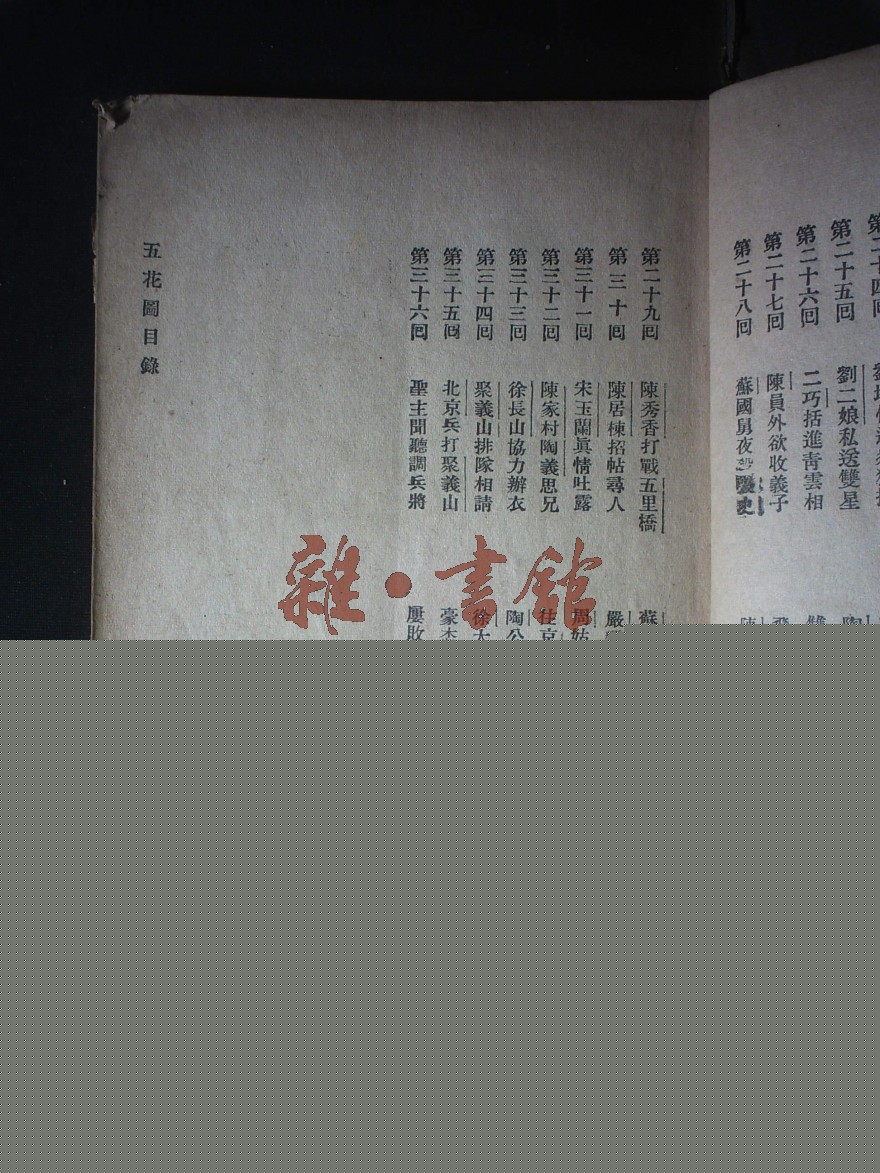 第二十五回 劉二娘私送雙星 陶
第二十六回 二巧括進靑雲相 雙
第二十七回 陳員外欲收義子 飛
第二十八回 蘇國舅夜 陳
第二十九回 陳秀香打戰五里橋 蘇
第三十回 陳居棟招帖尋人 嚴
第三十一回 宋玉蘭眞情吐露 周姑
第三十二回 陳家村陶義思兄 往京
第三十三回 徐長山協力辦衣 陶公
第三十四回 聚義山排隊相請 徐大
第三十五回 北京兵打聚義山 豪杰
第三十六回 聖主聞聽調兵將 屢敗
五花圖目錄
雜·書館